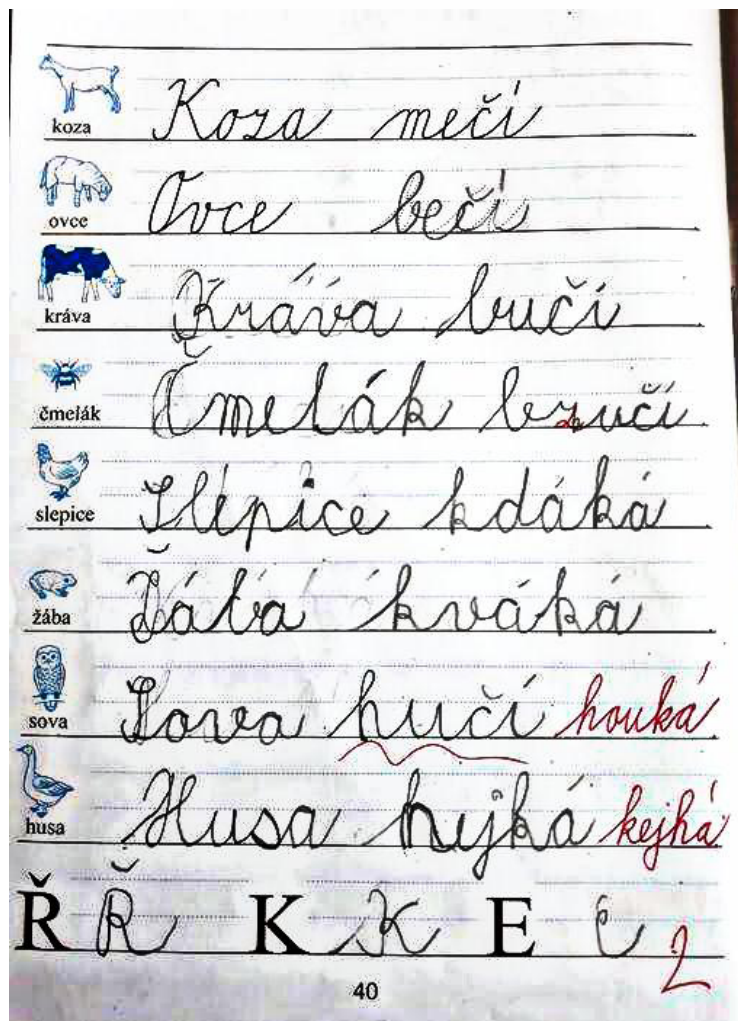 koza Koza mečí
ovce Ovce bečí
kráva Kráva bučí
čmelák Čmelák bzučí
slepice Slepice kdáká
žába Žába kváká
sova Sova hučí houká
husa Husa hyjká kejhá
Ř Ř K K E E 2
40